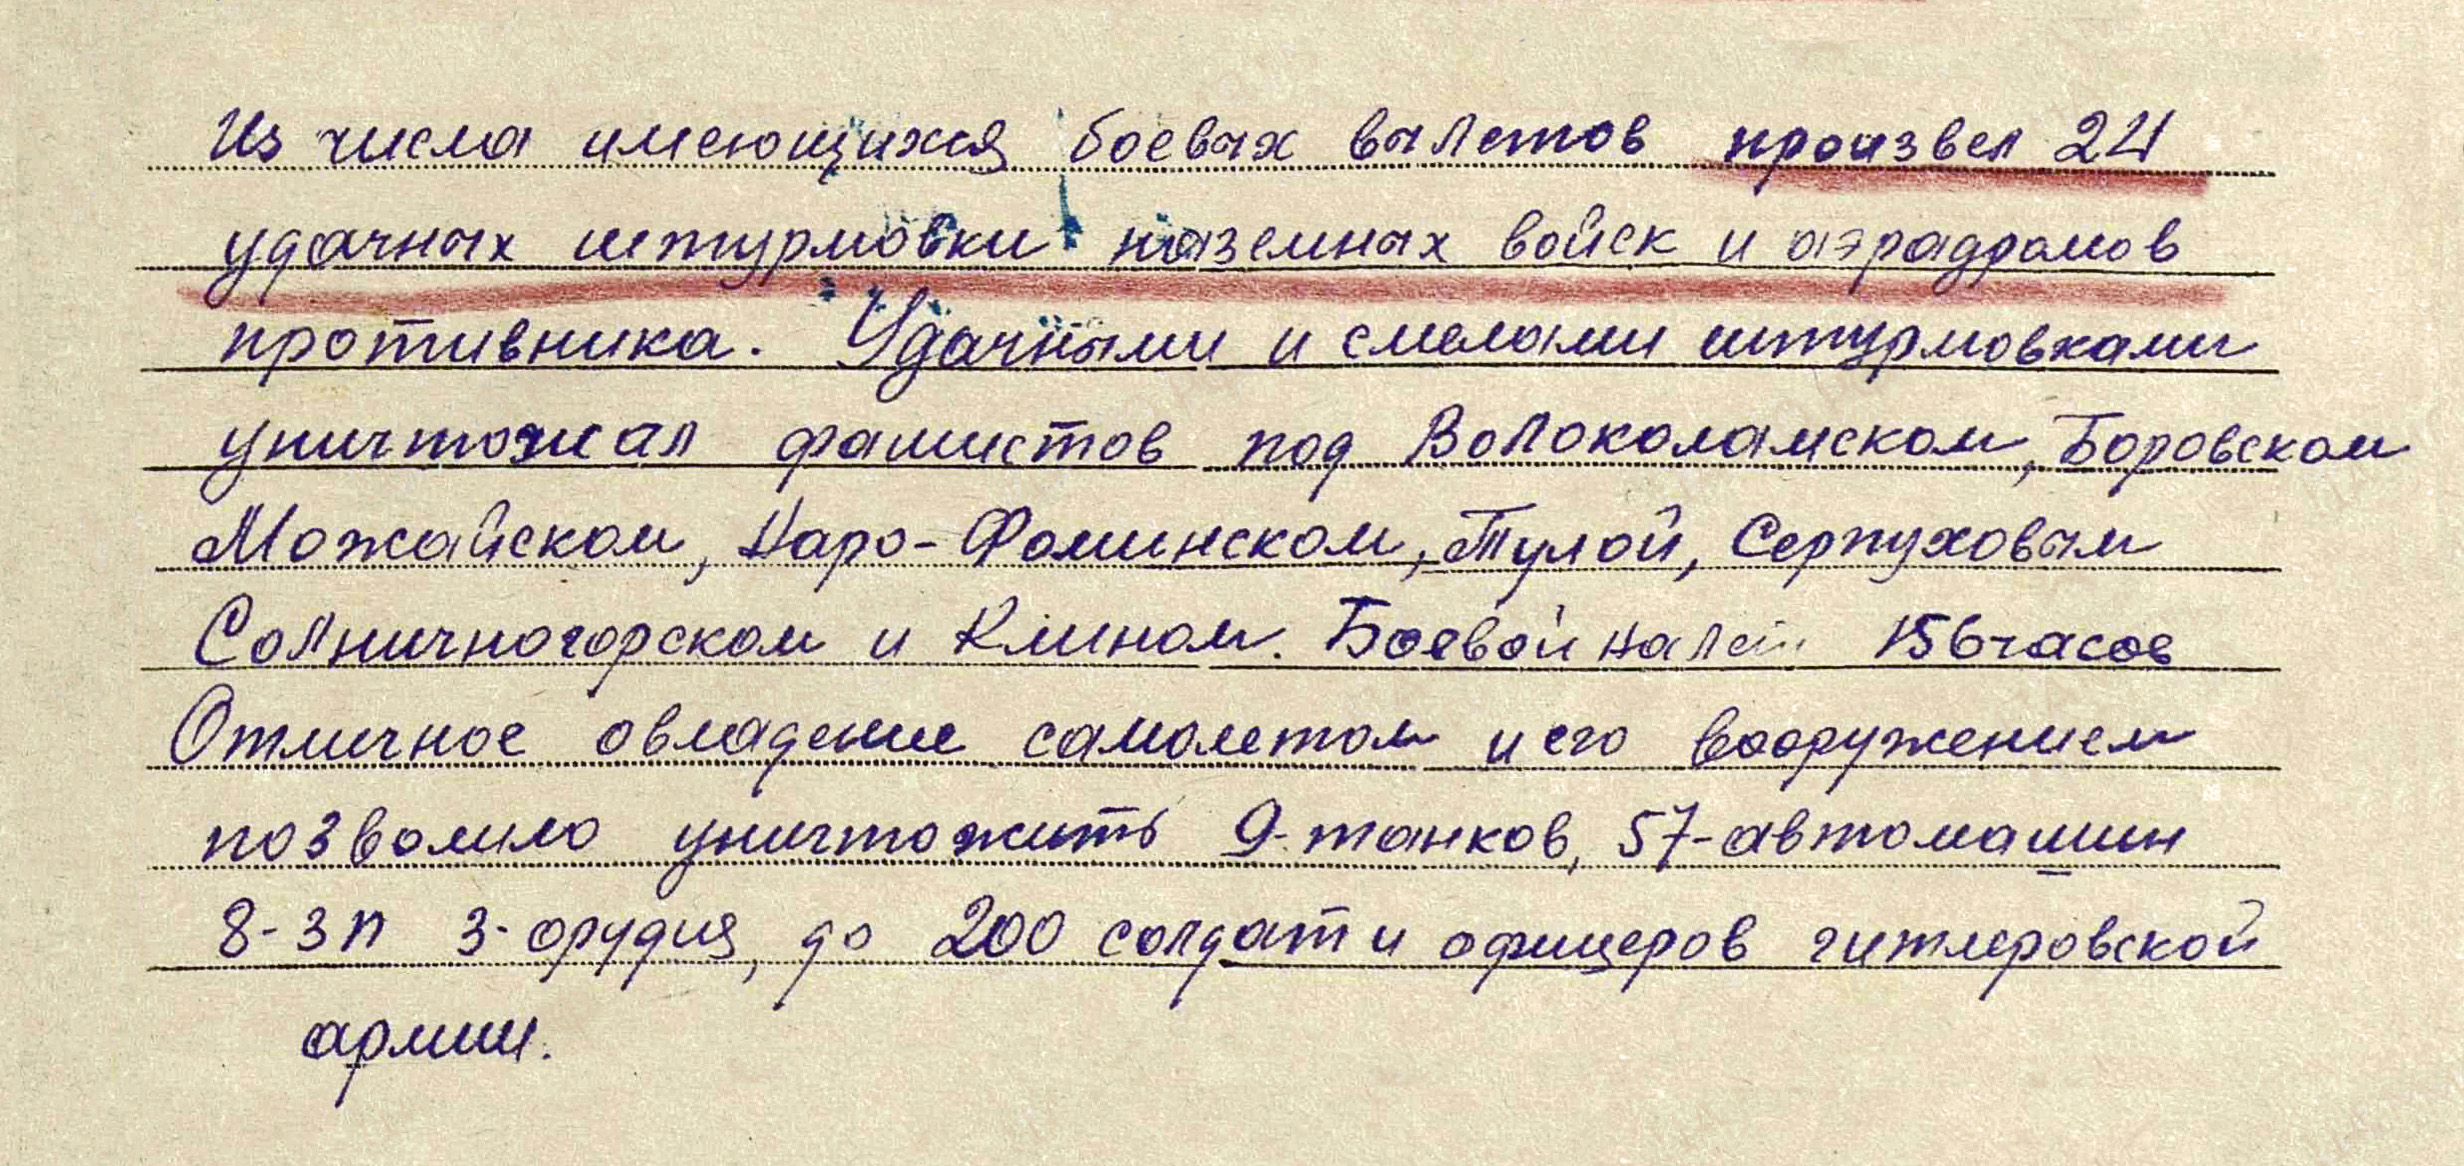 Из числа имеющихся боевых вылетов произвел 24
удачных штурмовки наземных войск и аэрадромов
противника. Удачными и смелыми штурмовками
уничтожал фашистов под Волоколамском, Боровском
Можайском, Наро-Фоминском, Тулой, Серпуховым
Солничногорском и Клином. Боевой налет 156 часов
Отличное овладение самолетом и его вооружением
позволило уничтожить 9-танков, 57-автомашин
8-ЗП 3-орудия, до 200 солдат и офицеров гитлеровской
армии.